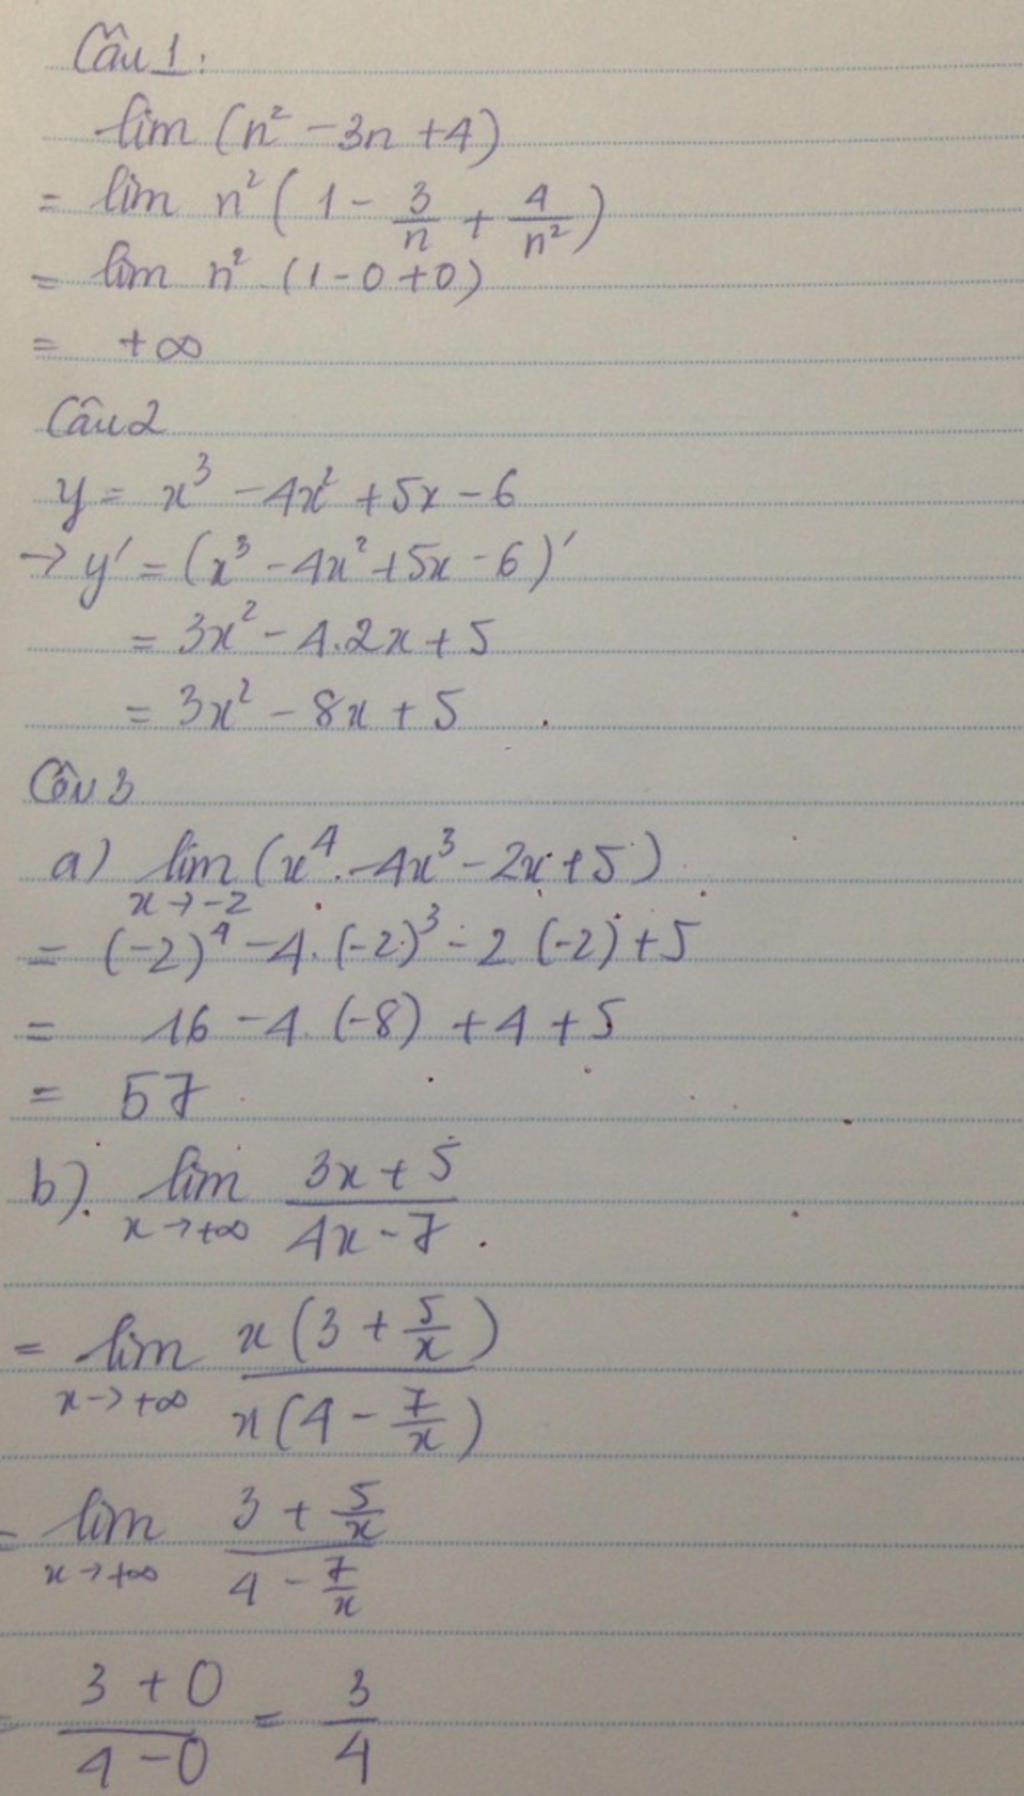 Câu 1:
lim (n² - 3n + 4)
= lim n² (1 - 3/n + 4/n²)
= lim n² . (1 - 0 + 0)
= +∞
Câu 2
y = x³ - 4x² + 5x - 6
→ y' = (x³ - 4x² + 5x - 6)'
= 3x² - 4.2x + 5
= 3x² - 8x + 5
Câu 3
a) lim x→-2 (x⁴ - 4x³ - 2x + 5)
= (-2)⁴ - 4.(-2)³ - 2.(-2) + 5
= 16 - 4.(-8) + 4 + 5
= 57
b). lim x→+∞ (3x + 5)/(4x - 7)
= lim x→+∞ x(3 + 5/x)/x(4 - 7/x)
= lim x→+∞ (3 + 5/x)/(4 - 7/x)
= (3 + 0)/(4 - 0) = 3/4